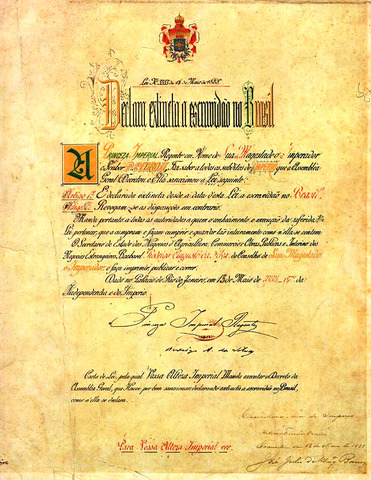 Lei Nº 3353 de 13 de Maio de 1888.
Declara extincta a escravidão no Brasil
A PRINCEZA IMPERIAL Regente em Nome de Sua Magestade o Imperador
o Senhor D. PEDRO II, Faz saber a todos os subditos do Imperio que a Assembléa
Geral Decretou e Ella sanccionou a Lei seguinte:
Artigo 1º É declarada extincta desde a data desta Lei a escravidão no Brazil.
Artigo 2º Revogam-se as disposições em contrario.
Manda portanto a todas as autoridades a quem o conhecimento e execução da referida
Lei pertencer, que a cumpram e façam cumprir e guardar tão inteiramente como n'ella se contem.
O Secretario de Estado dos Negocios d'Agricultura, Commercio e Obras Publicas e Interino dos
Negocios Estrangeiros, Bacharel Rodrigo Augusto da Silva do Conselho de Sua Magestade
o Imperador, o faça imprimir, publicar e correr.
Dado no Palacio do Rio de Janeiro, em 13 de Maio de 1888, 67º da
Independencia e do Imperio.
Princeza Imperial Regente
Rodrigo A. da Silva
Carta de Lei, pela qual Vossa Alteza Imperial Manda executar o Decreto da
Assembléa Geral, que Houve por bem sanccionar, declarando extincta a escravidão no Brazil,
como n'ella se declara.
Para Vossa Alteza Imperial ver.